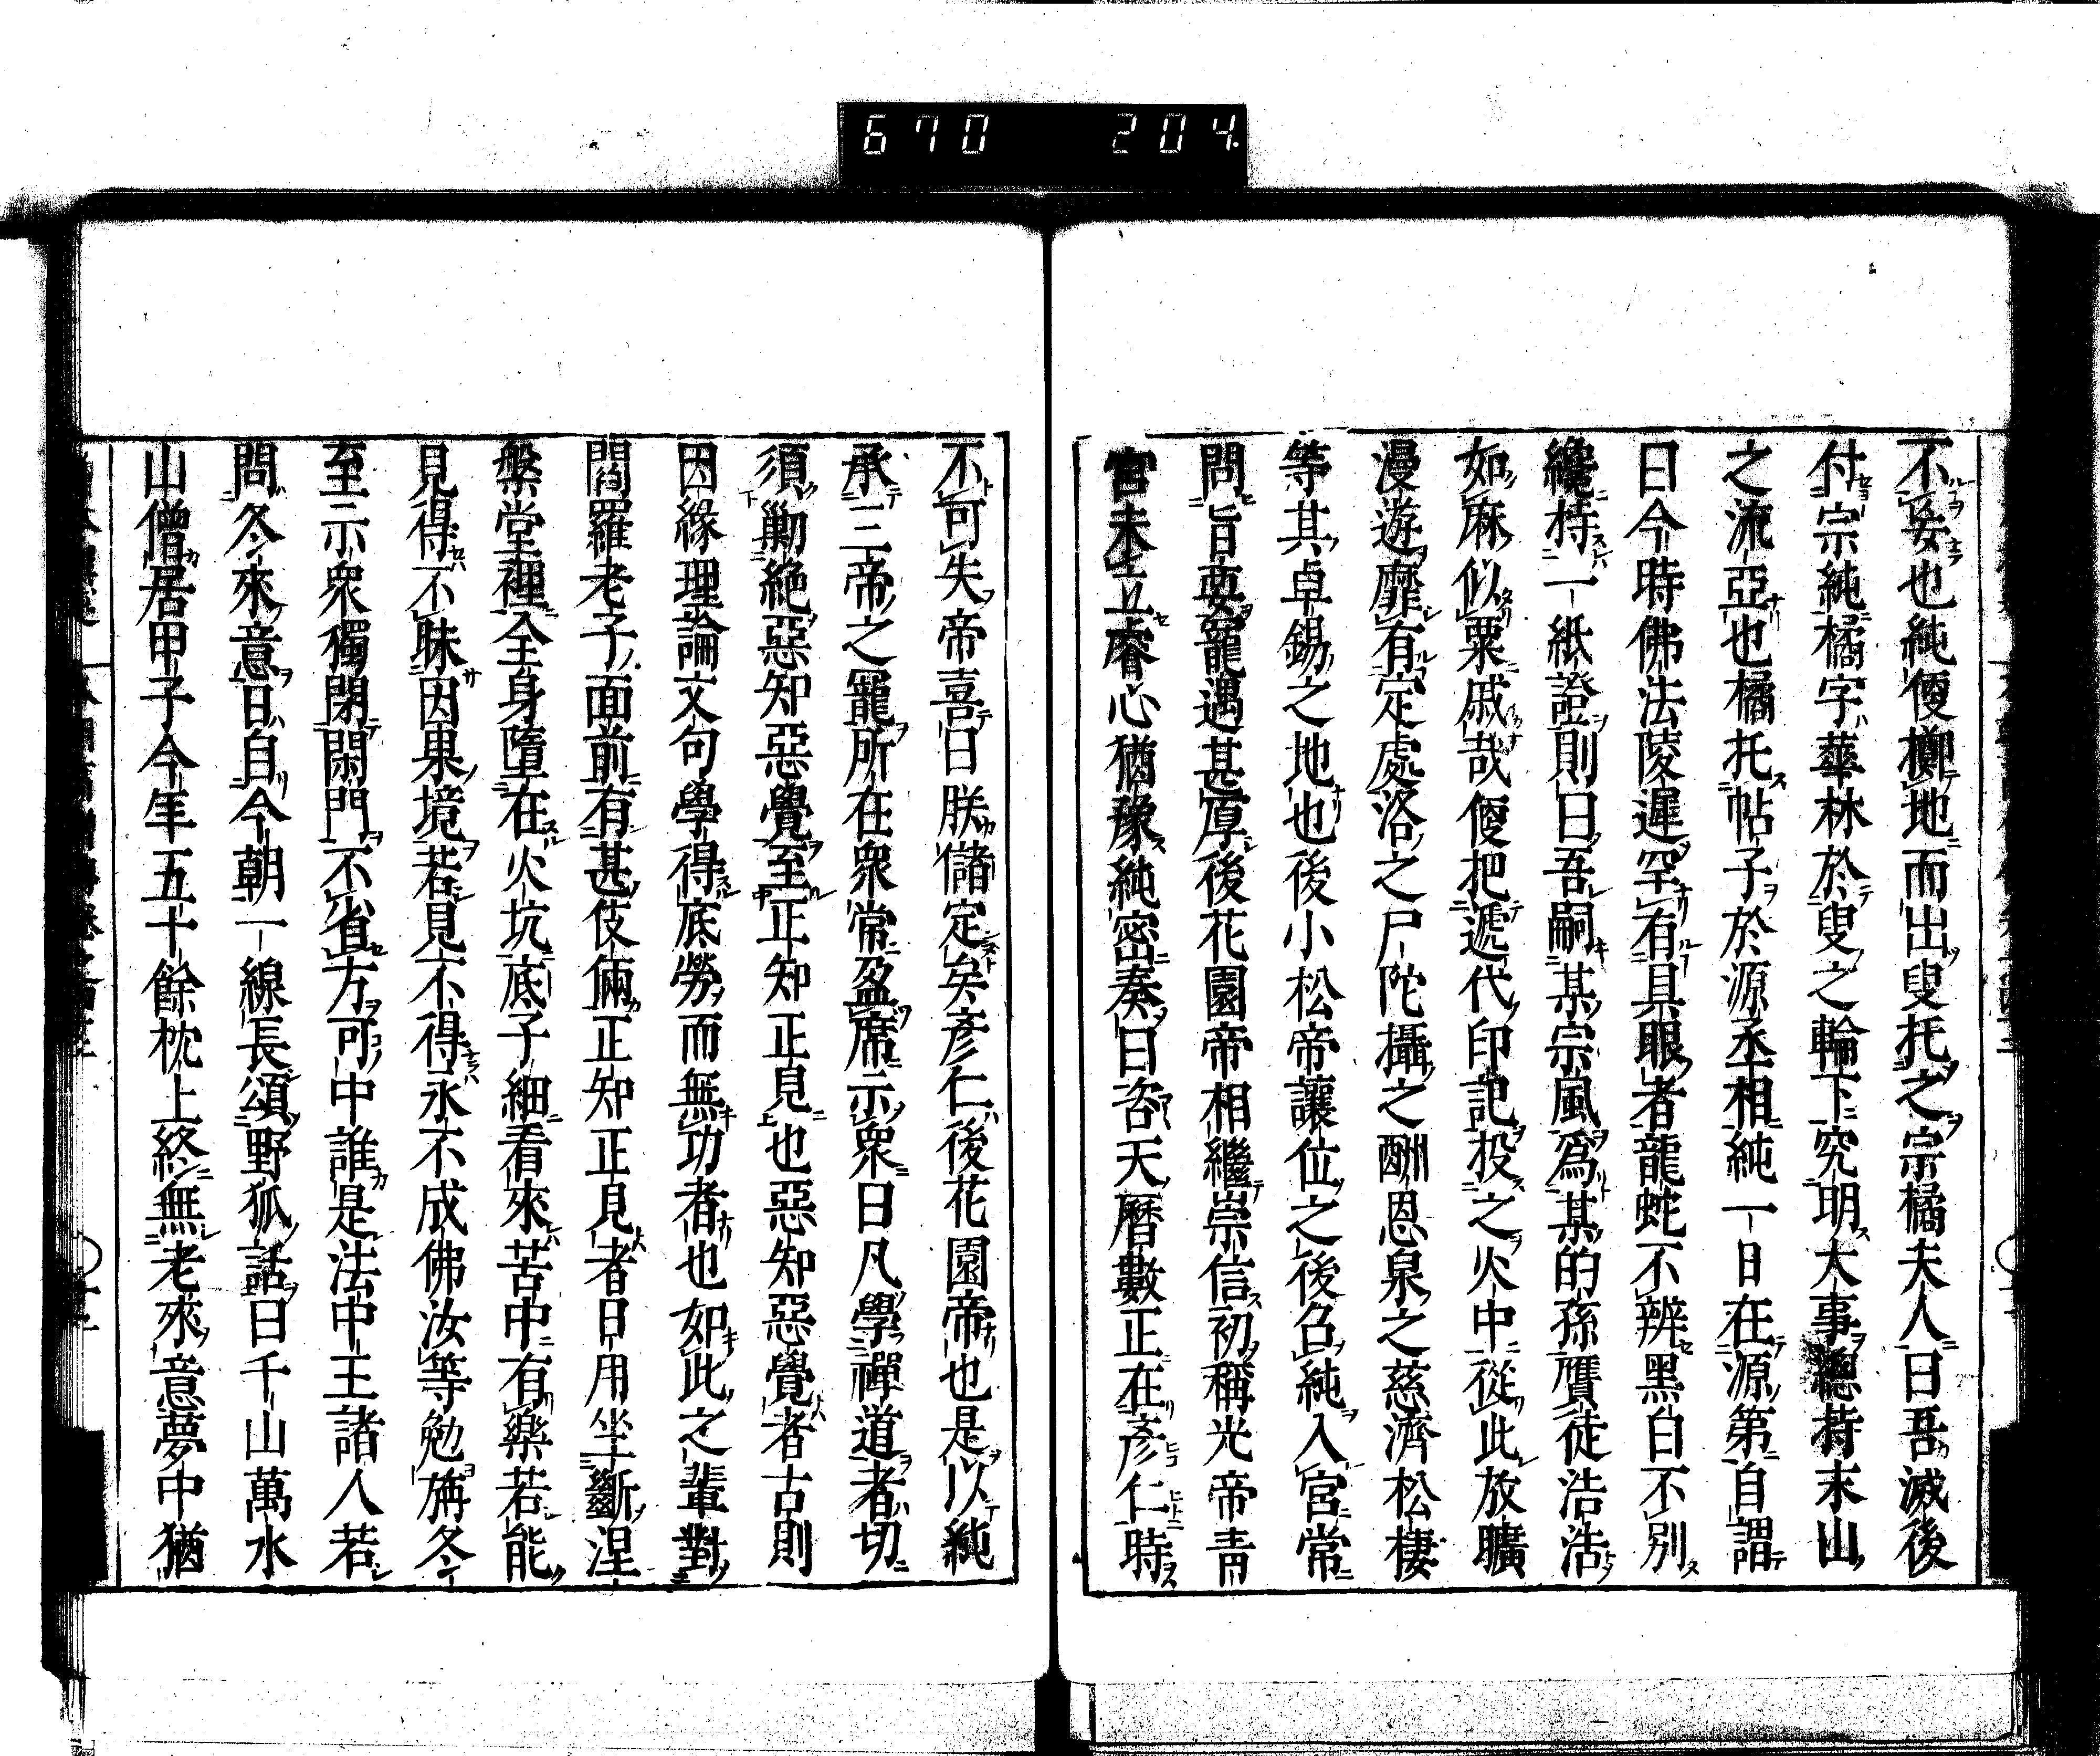 670 204.
不妄也純便擲地而出叟托之宗橘夫人曰吾滅後
付宗純橘字華林於叟之輪下究明大事總持末山
之流亞也橘托帖子於源丞相純一日在源第自謂
曰今時佛法陵遲罕有具眼者龍蛇不辨黑白不別
纔持一紙證則曰吾嗣某宗風爲某的孫贋徒浩浩
如麻似粟戚哉便把遞代印記投之火中從此放曠
漫遊靡有定處洛之尸陀攝之酬恩泉之慈濟松棲
等其卓錫之地也後小松帝讓位之後召純入宮常
問旨要寵遇甚厚後花園帝相繼崇信初稱光帝青
宮未立睿心猶豫純密奏曰咨天曆數正在彥仁時
不可失帝喜曰朕儲定矣彥仁後花園帝也是以純
承三帝之寵所在衆常盈席示衆曰凡學禪道者切
須勦絶惡知惡覺至正知正見也惡知惡覺者古則
因緣理論文句學得底勞而無功者也如此之輩對
閻羅老子面前有甚伎倆正知正見者日用坐斷涅
槃堂裡全身墮在火坑底子細看來苦中有樂若能
見得不昧因果境若見不得永不成佛汝等勉旃冬
至示衆獨閉閑門不省方可中誰是法中王諸人若
問冬來意日自今朝一線長頌野狐話曰千山萬水
山僧居甲子今年五十餘枕上終無老來意夢中猶